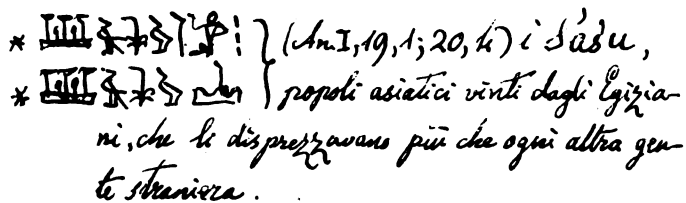 * (An. I, 19, 1; 20, 4) i śȧśu,
* popoli asiatici vinti dagli Egizia-
ni, che li disprezzavano più che ogni altra gen-
te straniera.